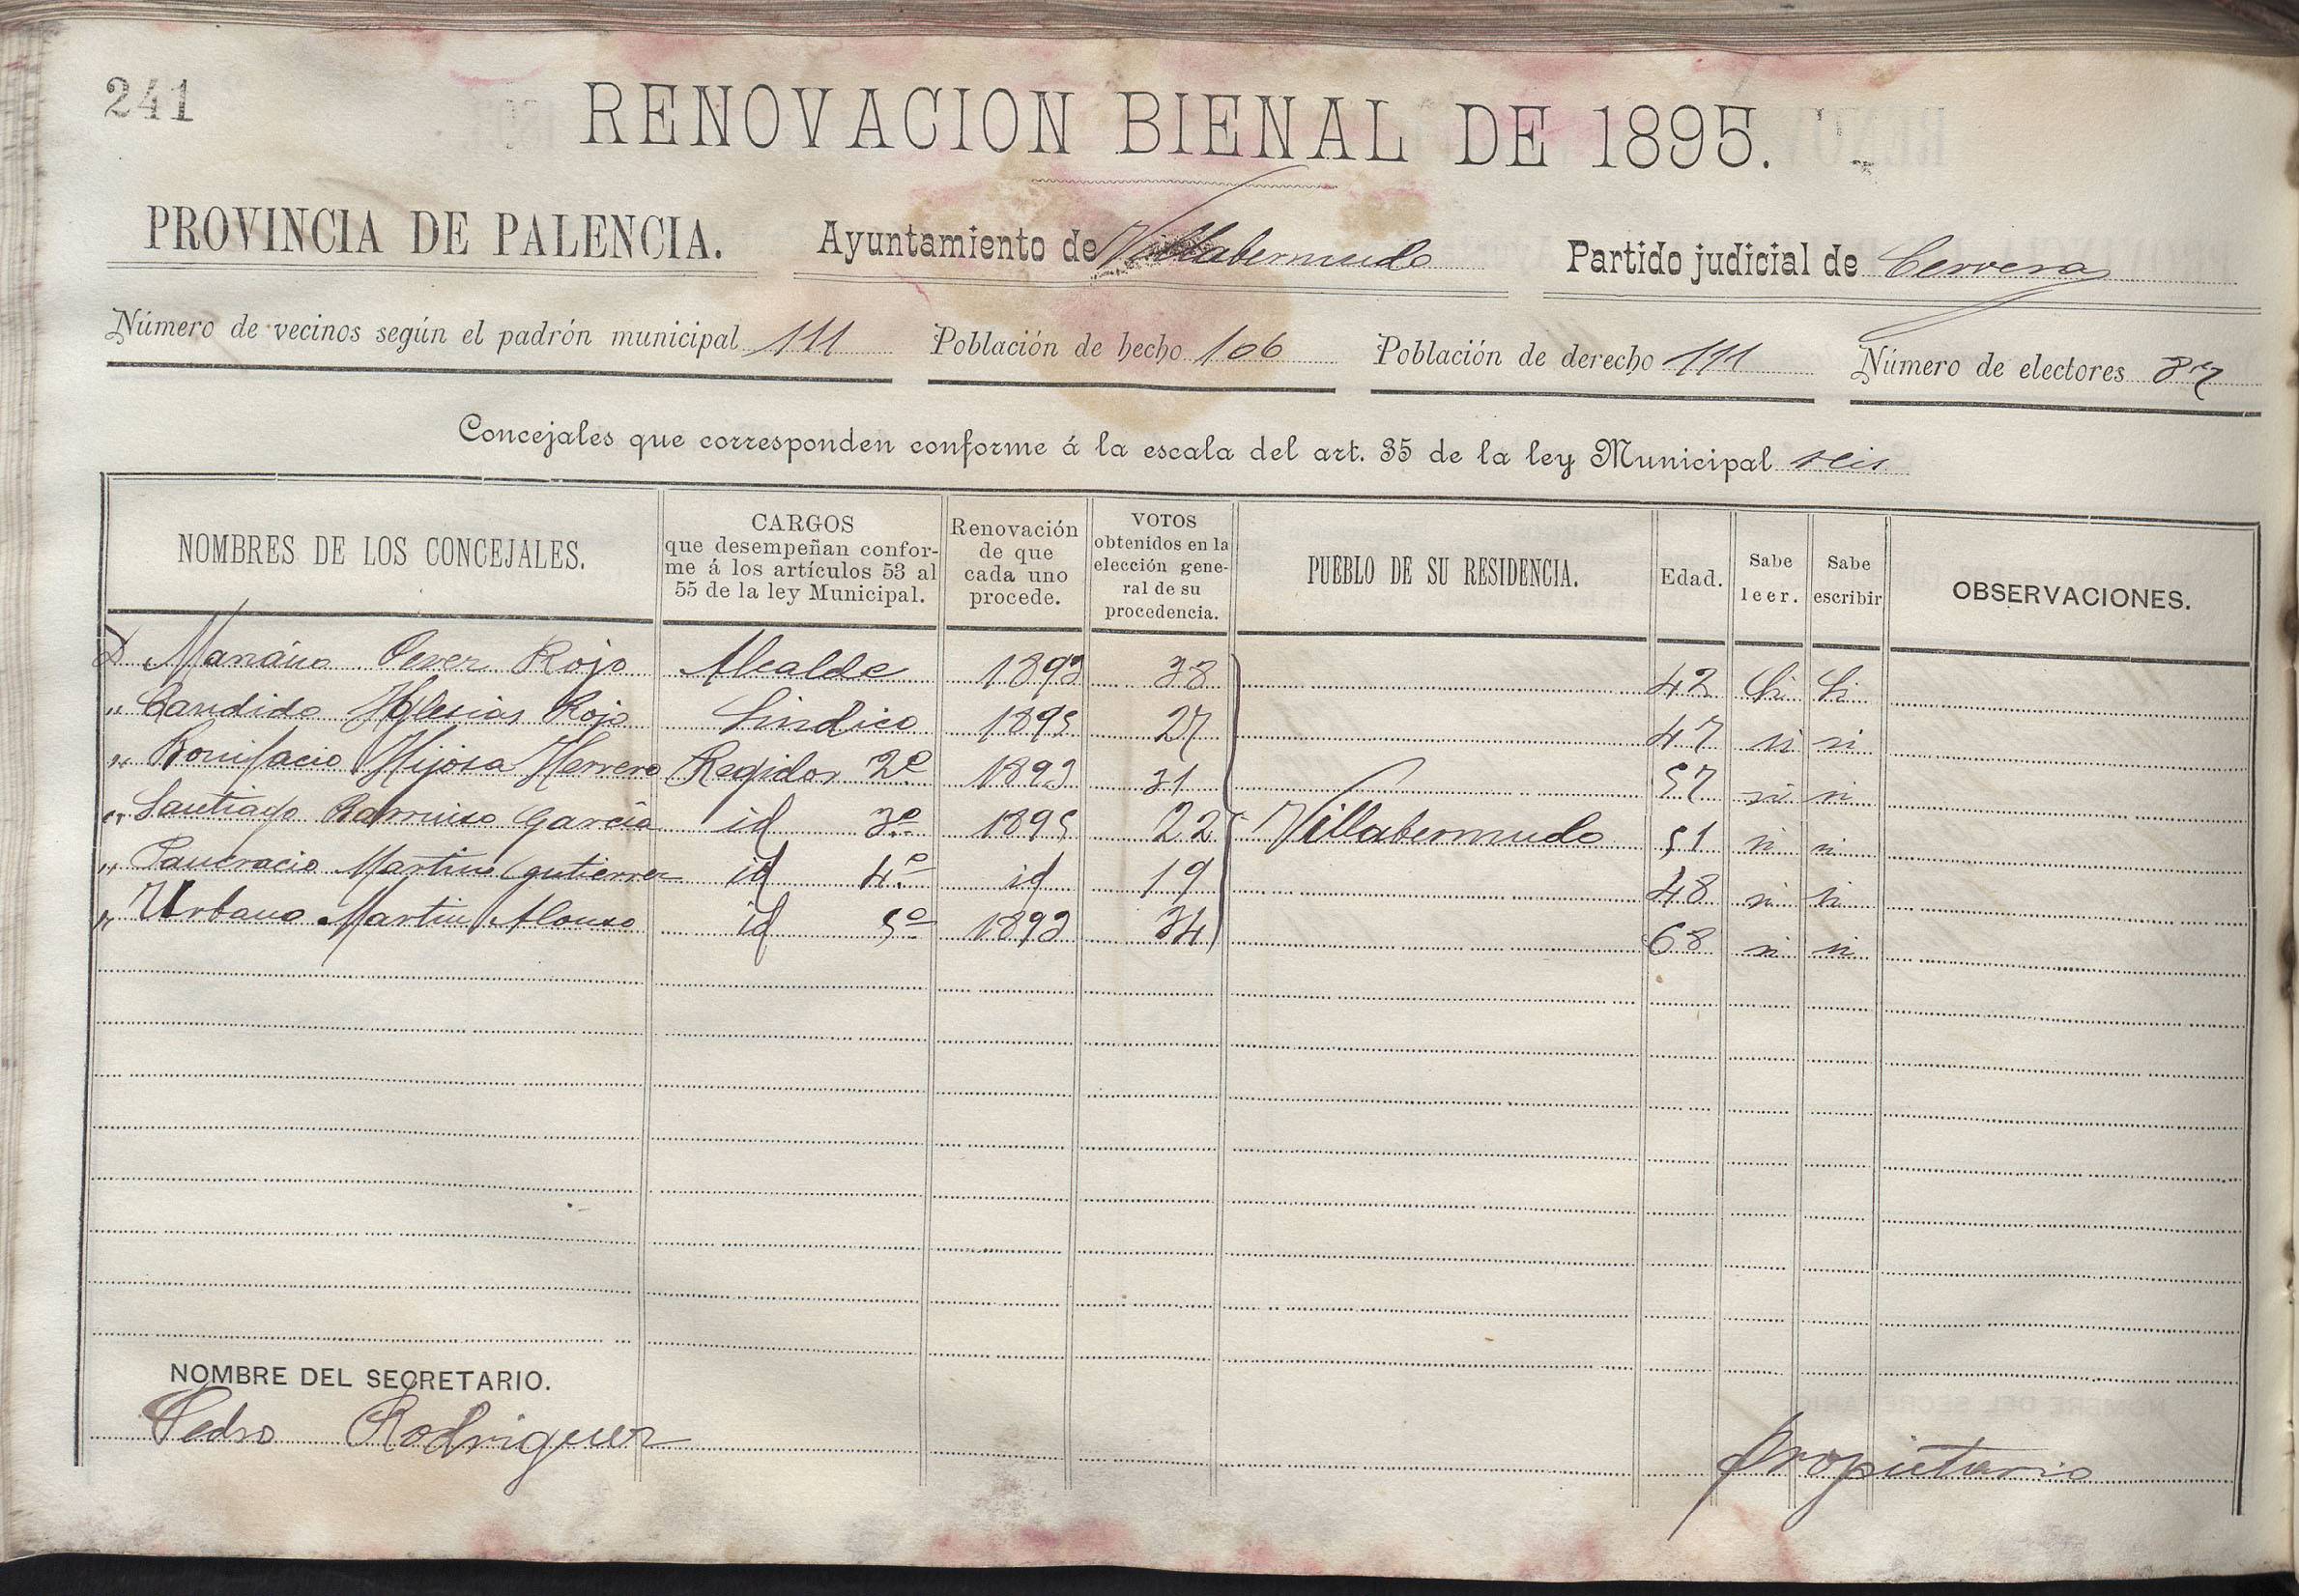 241
RENOVACION BIENAL DE 1895.
PROVINCIA DE PALENCIA. Ayuntamiento de Villabermudo Partido judicial de Cervera
Número de vecinos según el padrón municipal 111 Población de hecho 106 Población de derecho 111 Número de electores 87
Concejales que corresponden conforme á la escala del art. 35 de la ley Municipal seis
NOMBRES DE LOS CONCEJALES. CARGOS que desempeñan conforme á los artículos 53 al 55 de la ley Municipal. Renovación de que cada uno procede. VOTOS obtenidos en la elección general de su procedencia. PUEBLO DE SU RESIDENCIA. Edad. Sabe leer. Sabe escribir OBSERVACIONES.
D Mariano Perez Rojo Alcalde 1893 38 42 Si Si
" Candido Yglesias Rojo Sindico 1895 27 47 si si
" Bonifacio Hijosa Herrero Regidor 2º 1893 31 57 si si
" Santiago García id 3º 1895 22 Villabermudo 51 si si
" Pancracio Martin Gutierrez id 4º id 19 48 si si
" Urbano Martin Alonso id 5º 1893 34 68 si si
NOMBRE DEL SECRETARIO.
Pedro Rodriguez propietario